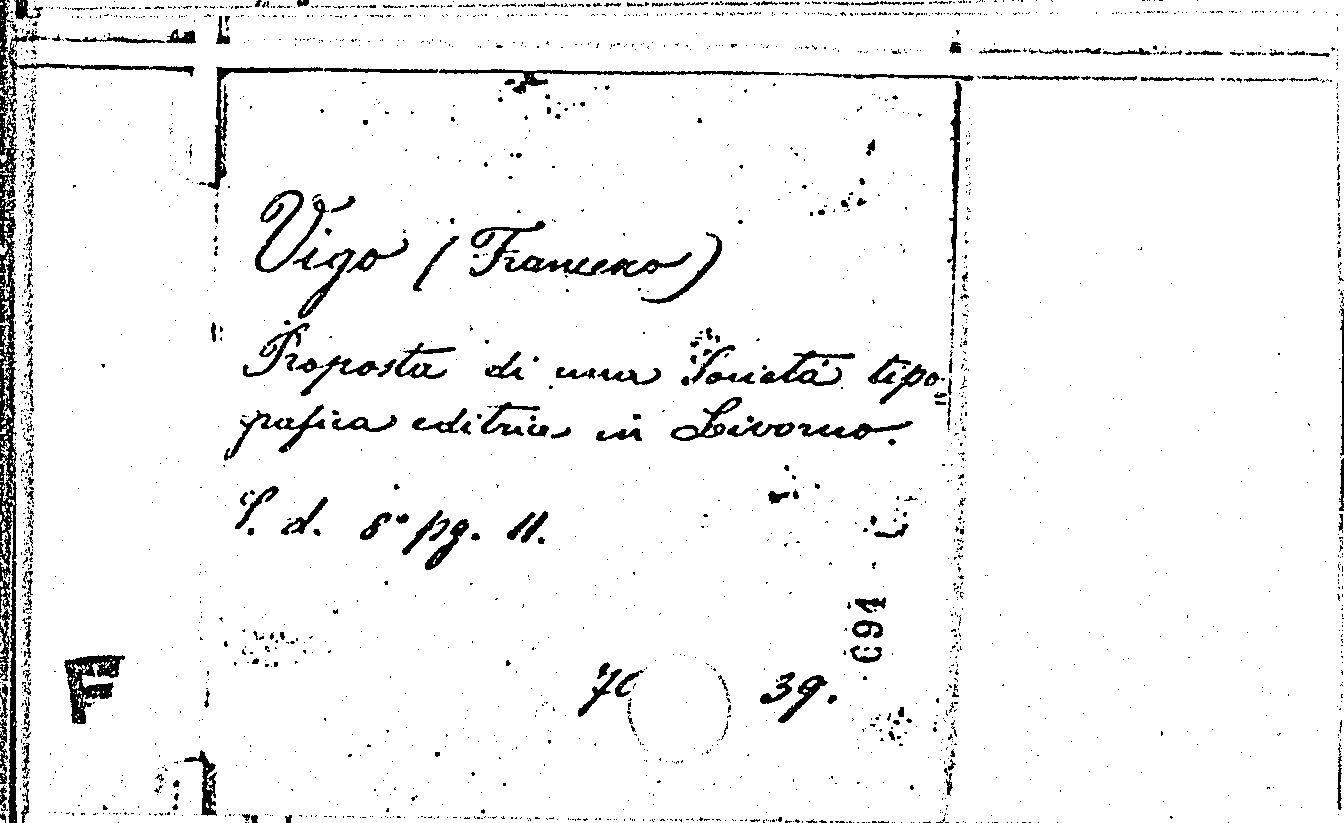 Vigo (Francesco)
Proposta di una Società tipo=
grafica editrice in Livorno.
S. d. 8° pg. 11.
39.
F